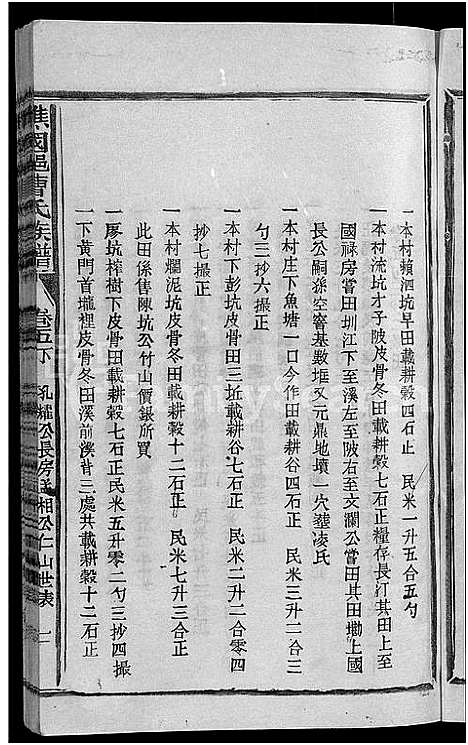 一本村賴泗坑早田載耕穀四石止　民米一升五合五勺
一本村流坑才子陂皮骨冬田載耕穀七石正糧存長汀其田上至
國祿房嘗田圳江下至溪左至陂右至文瀾公嘗田其田墈上國
長公嗣孫空窨基數堆又元鼎地墳一穴葬凌氏
一本村庄下魚塘一口今作田載耕谷四石正　民米三升二合三
勺三抄六撮正
一本村下彭坑皮骨田三坵載耕谷七石正　民米二升二合零四
抄七撮正
一本村爛泥坑皮骨冬田載耕穀十二石正　民米七升三合正
此田係售陳坑公竹山價銀所買
一廖坑榨樹下皮骨田載耕穀七石正民米五升零二勺三抄四撮
一下黃門首壠裡皮骨冬田溪前溪背三處共載耕穀十二石正
譙國邑曹氏族譜　卷五下　孔墟公長房孟相公仁山世表